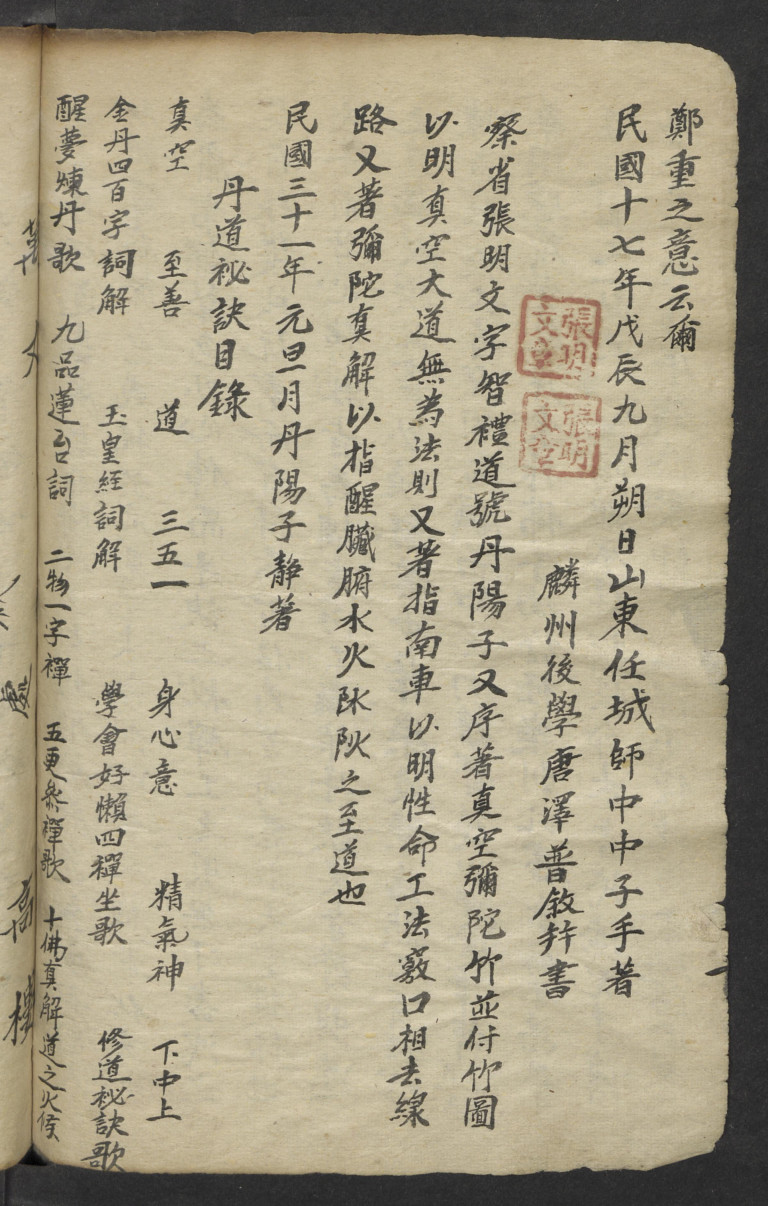 鄭重之意云爾
民國十七年戊辰九月朔日山東任城師中中子手著
麟州後學唐澤普敘并書
張明
文章
張明
文
察省張明文字智禮道號丹陽子又序著真空彌陀竹並付竹圖
以明真空大道無為法則又著指南車以明性命工法竅口相去線
路又著彌陀真解以指醒臟腑水火之至道也
民國三十一年元旦月丹陽子靜著
丹道祕訣目錄
真空 至善 道 三五一 身心意 精氣神 下中上
金丹四百字詞解 玉皇經詞解 學會好懶四禪坐歌 修道祕訣歌
醒夢煉丹歌 九品蓮台詞 二物一字禪 五更參禪歌 十佛真解道之火候